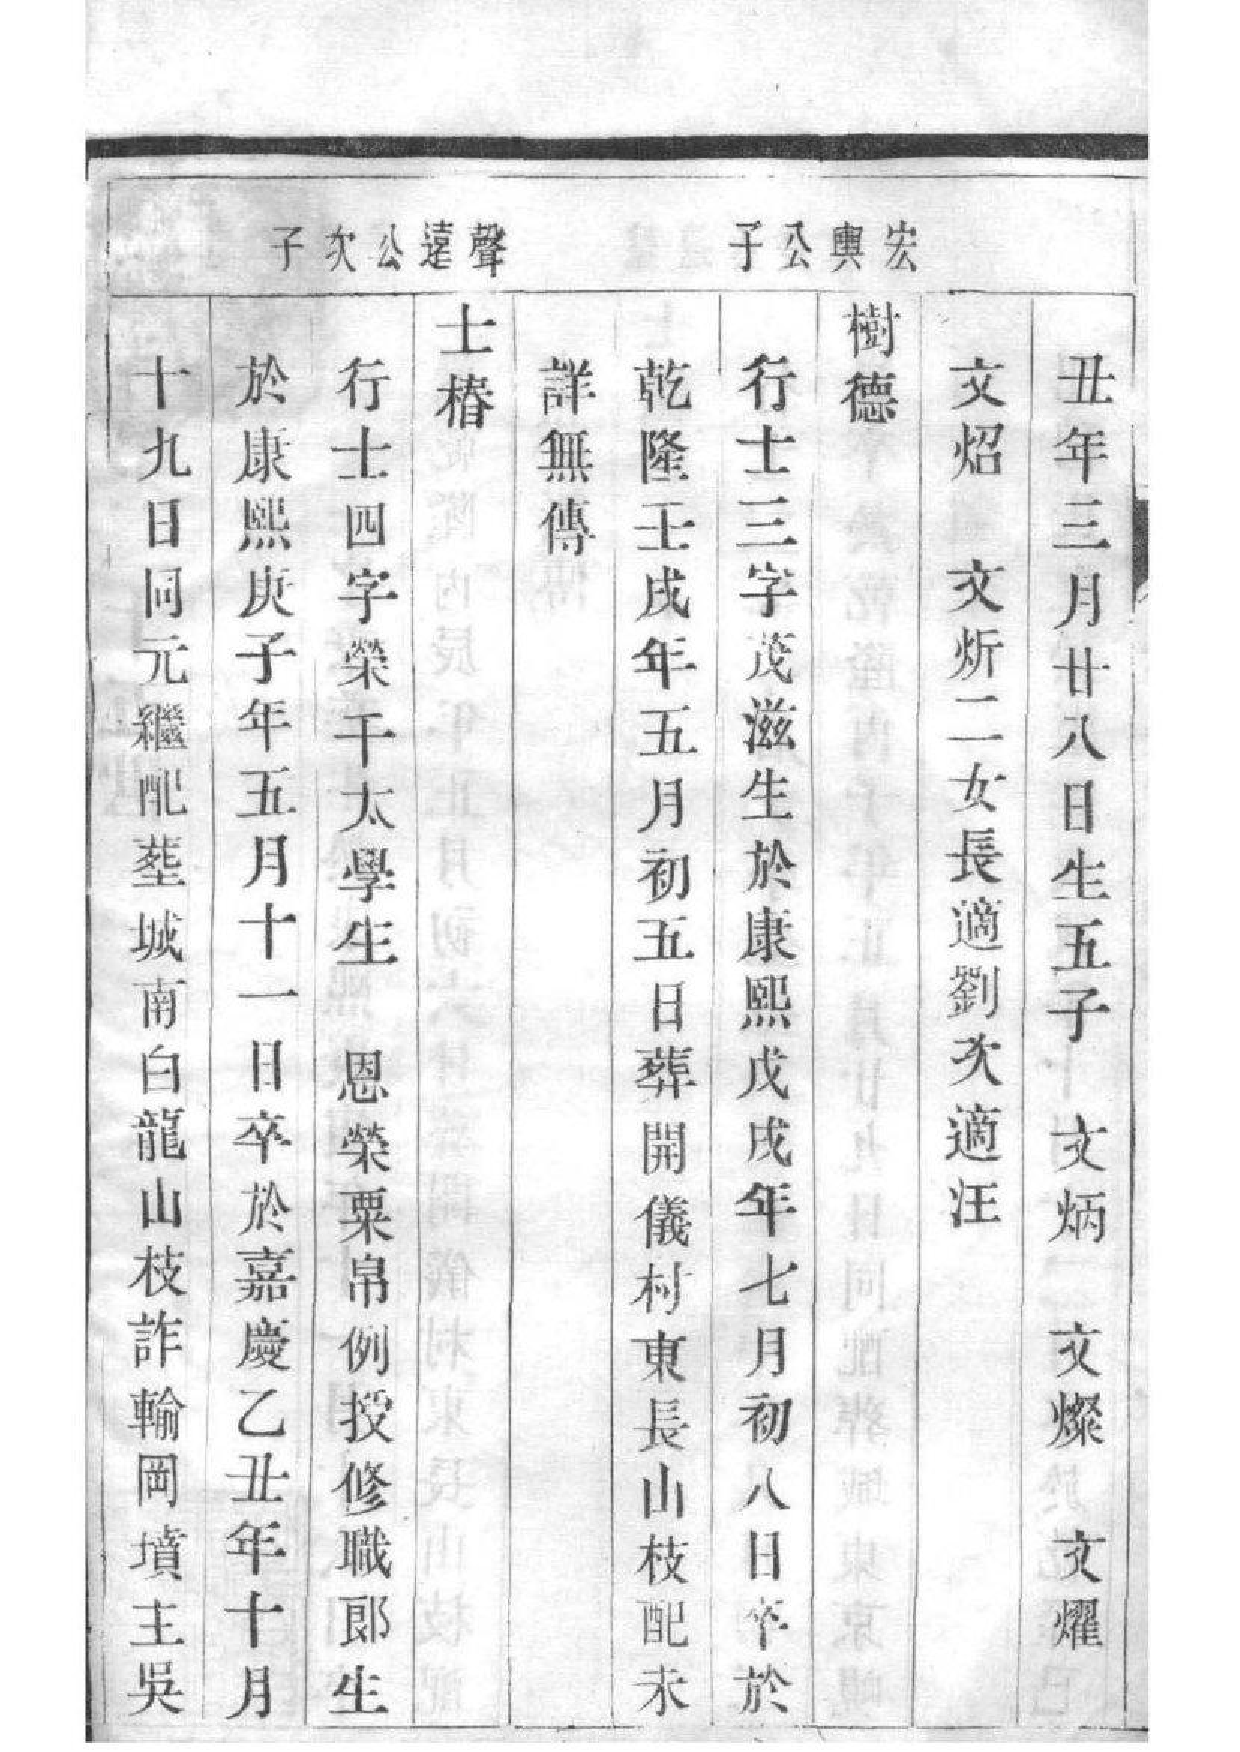 丑年三月廿八日生五子　文炳　文燦　文燿
文炤　文炘二女長適劉次適汪
宏輿公子
樹德
行士三字茂滋生於康熙戊戌年七月初八日卒於
乾隆壬戌年五月初五日葬開儀村東長山枝配未
詳無傳
聲遠公次子
士椿
行士四字榮干太學生　恩榮粟帛例授修職郎生
於康熙庚子年五月十一日卒於嘉慶乙丑年十月
十九日同元繼配塟城南白龍山枝詐輸岡墳主吳